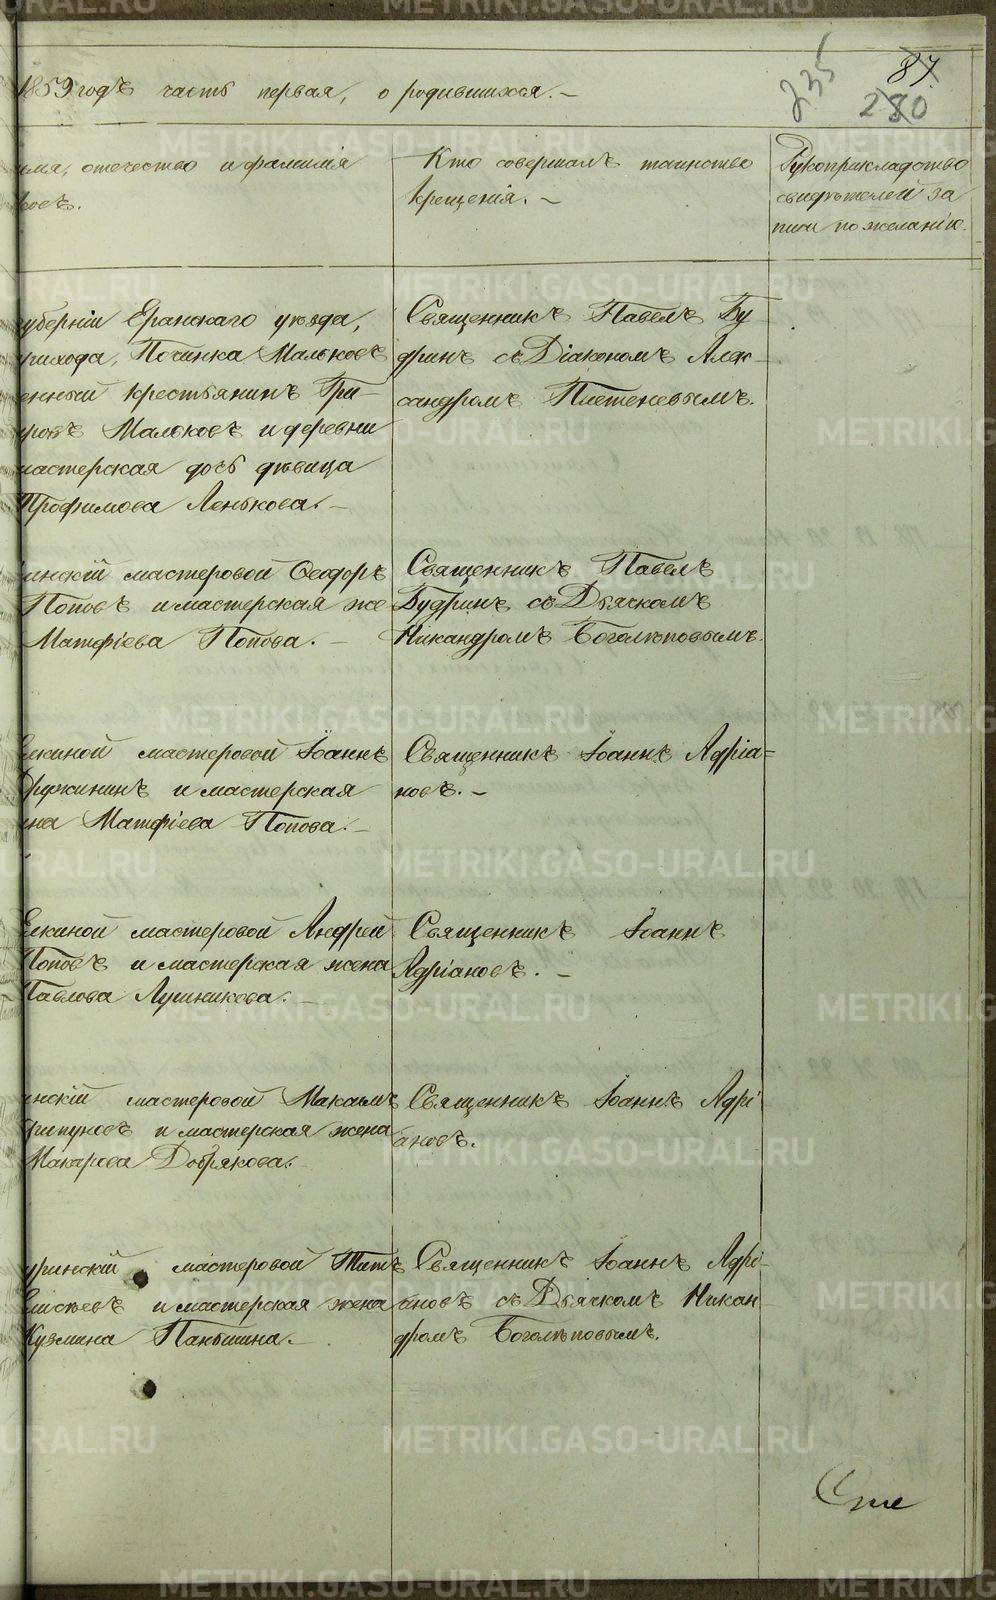 1859 годъ часть первая, о родившихся. –
235
87.
280
имя, отчество и фамилія
Кто совершалъ таинство
крещенія. –
Рукоприкладство
свидѣтелей за
писи по желанію.
губерніи Еранскаго уѣзда,
прихода, Починка Мальковъ
енный крестьянинъ Гри-
Мальковъ и деревни
мастерская дочь дѣвица
Трофимова Ленькова. –
Священникъ Павелъ Бу
дринъ съ Діакономъ Алек-
сандромъ Плетеневымъ.
инскій мастеровой Ѳеодоръ
Поповъ и мастерская же
Матѳіева Попова. –
Священникъ Павелъ
Будринъ съ Дьячкомъ
Никандромъ Боголѣповымъ.
мастеровой Іоаннъ
Дружининъ и мастерская
Матѳіева Попова. –
Священникъ Іоаннъ Адріа=
новъ. –
мастеровой Андрей
Поповъ и мастерская жена
Павлова Лушникова. –
Священникъ Іоаннъ
Адріановъ. –
нскій мастеровой Максимъ
и мастерская жена
Макарова Добрякова.
Священникъ Іоаннъ Адрі
ановъ.
уринскій мастеровой Титъ
Елисѣевъ и мастерская жена
Кузмина Паньшина. –
Священникъ Іоаннъ Адрі-
ановъ съ Дьячкомъ Никан
дромъ Боголѣповымъ.
METRIKI.GASO-URAL.RU